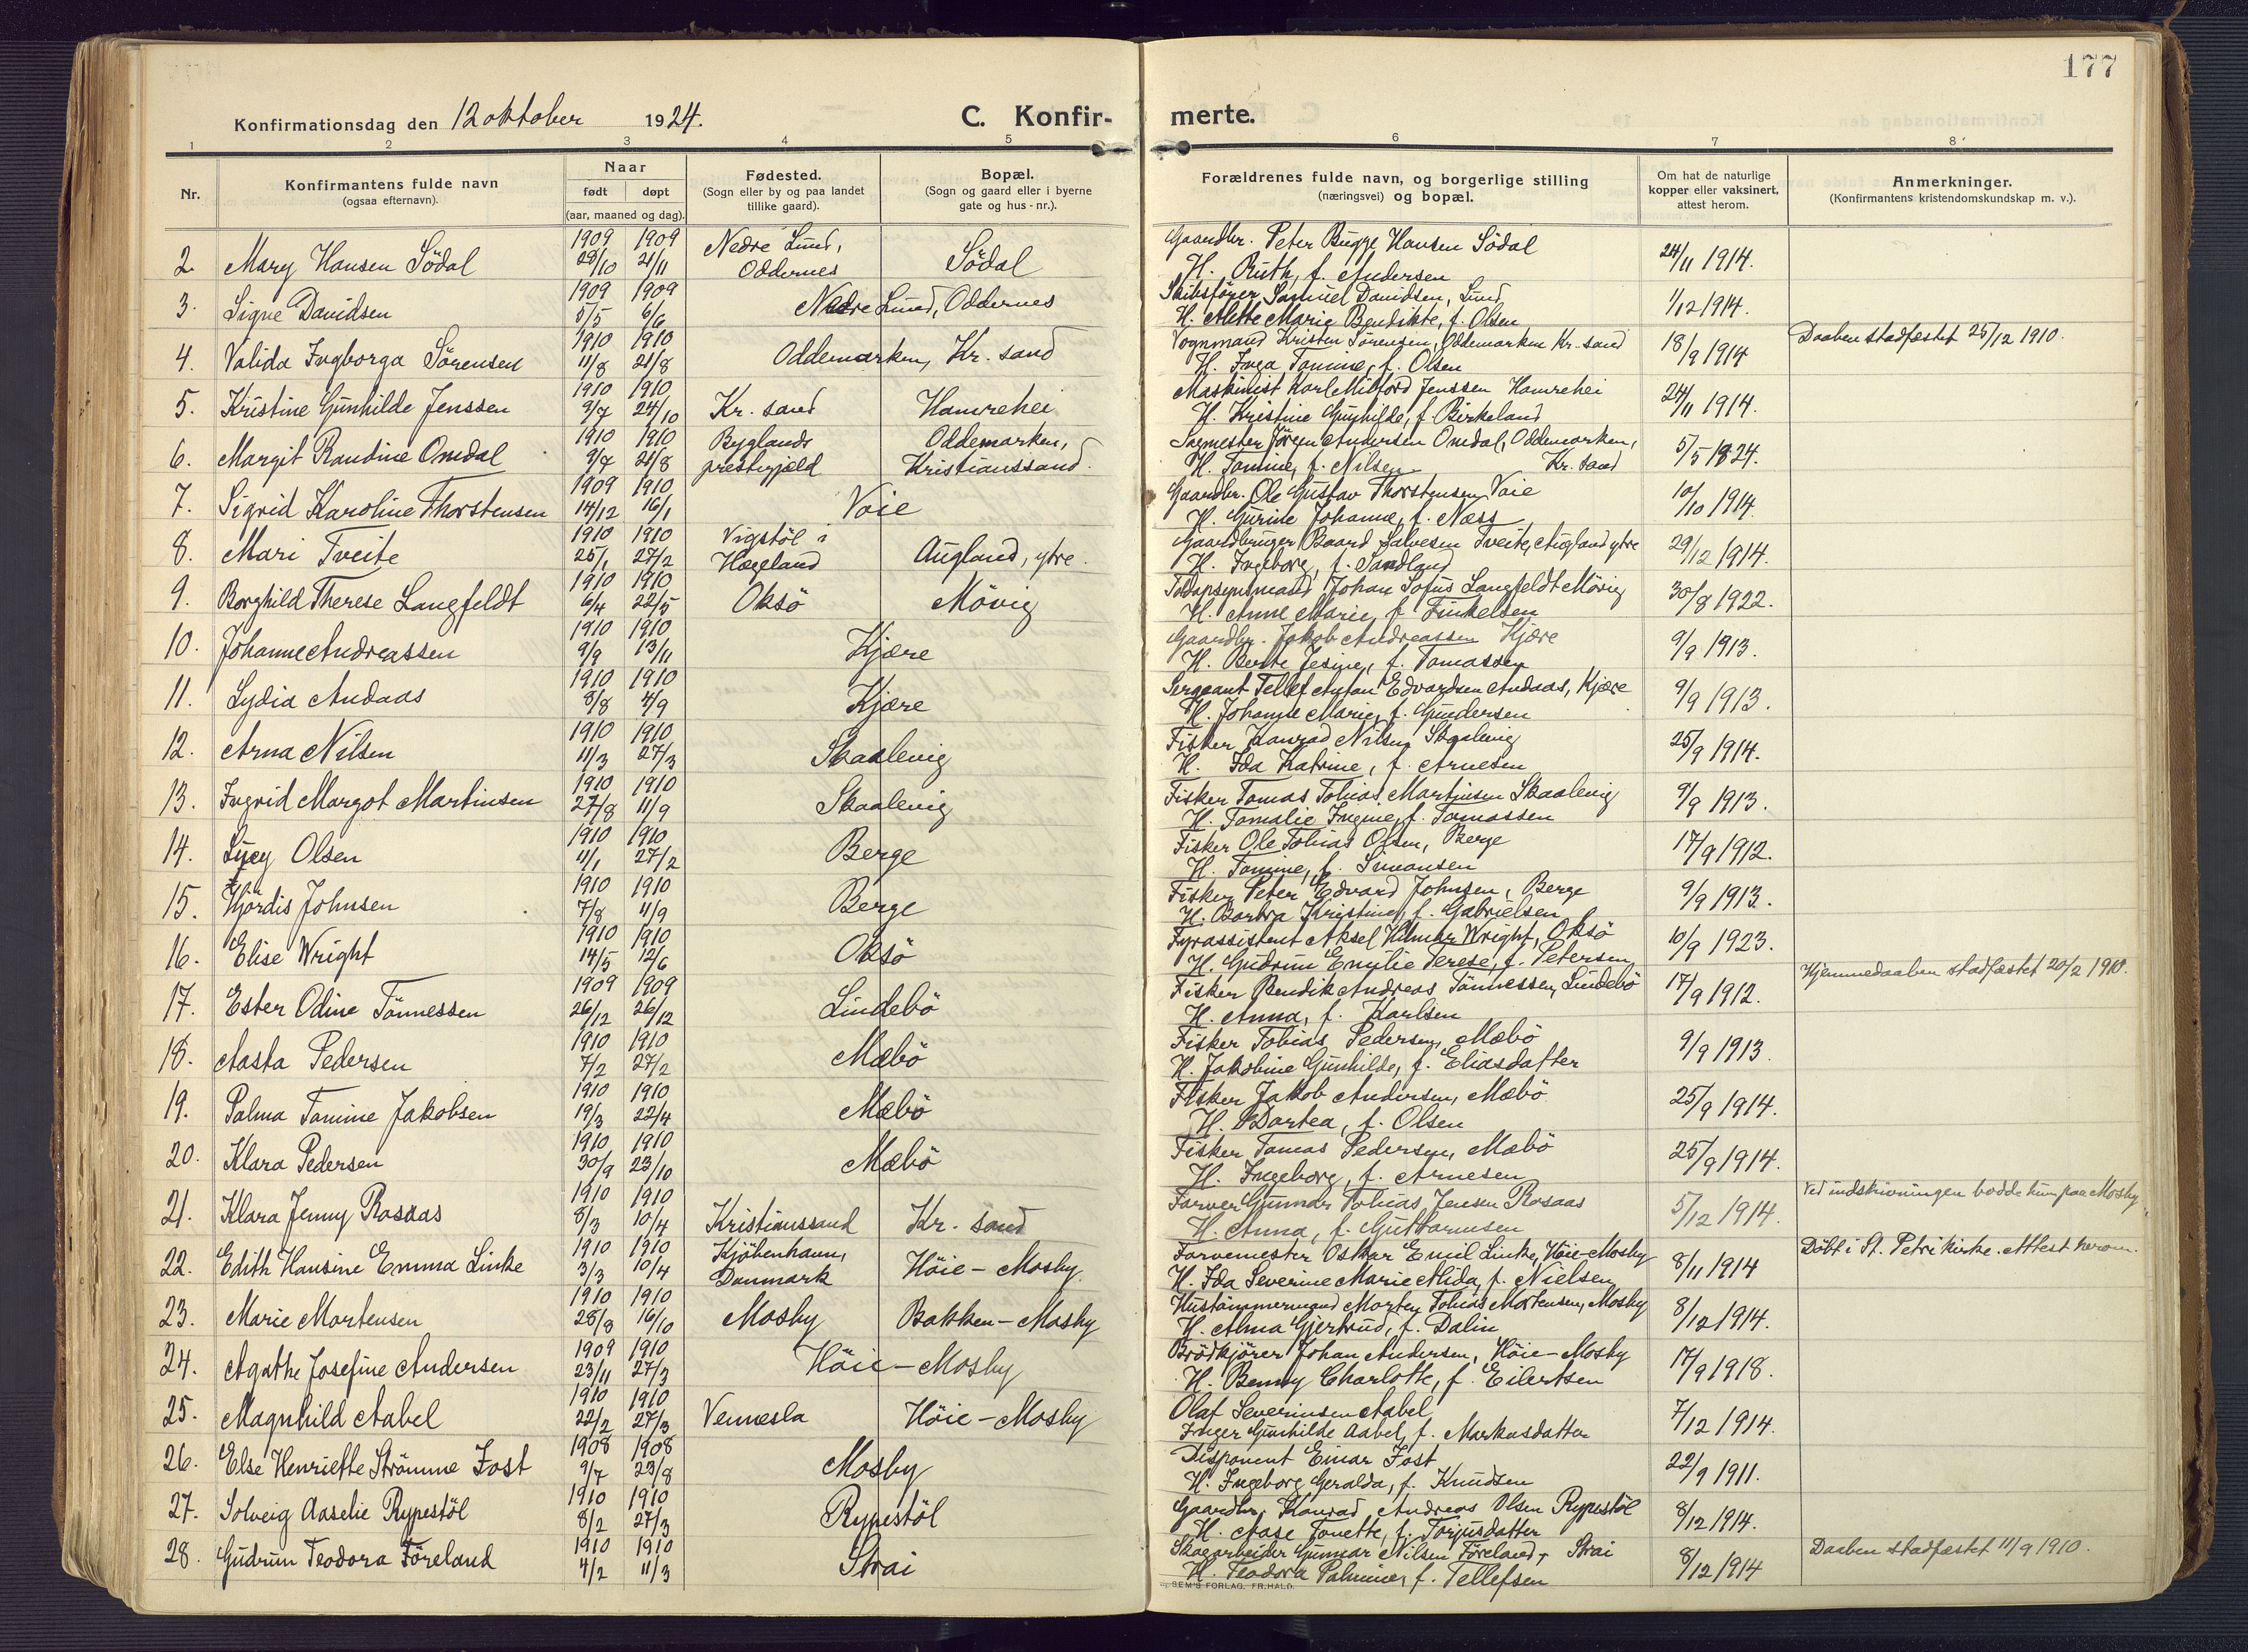 177
Konfirmationsdag den 12 oktober 1924.
C. Konfir-
merte.
1 2 3 4 5 6 7 8
Nr.
Konfirmantens fulde navn
(ogsaa efternavn).
Naar
født døpt
(aar, maaned og dag).
Fødested.
(Sogn eller by og paa landet
tillike gaard).
Bopæl.
(Sogn og gaard eller i byerne
gate og hus-nr.).
Forældrenes fulde navn, og borgerlige stilling
(næringsvei) og bopæl.
Om hat de naturlige
kopper eller vaksinert,
attest herom.
Anmerkninger.
(Konfirmantens kristendomskundskap m. v.).
1909 1909 Nedre Lund, Gaardbr. Peter Bugge Hansen Södal
2 Mary Hansen Södal 29/10 21/11 Oddernes Södal H. Ruth, f. Andersen 24/11 1914.
1909 1909 Skibsförer Samuel Davidsen, Lund
3. Signe Davidsen 5/5 6/6 Nedre Lund, Oddernes H. Alette Marie Bendikte, f. Olsen 1/12 1914.
1910 1910 Vognmand Kristen Sörensen, Oddemarken Kr. sand Daaben stadfæstet 25/12 1910.
4. Valida Ingborga Sörensen 11/8 21/8 Oddemarken, Kr. sand H. Inga Tomine, f. Olsen 18/9 1914
1910 1910 Maskinist Karl Milford Jenssen Hamrehei
5. Kristine Gunhilde Jenssen 9/7 24/10 Kr. sand Hamrehei H. Kristine Gunhilde, f. Birkeland 24/11 1914.
1910 1910 Byglands Oddemarken, Sagmester Jörgen Andersen Omdal, Oddemarken,
6. Margit Randine Omdal 9/7 21/8 prestegjæld Kristianssand. H. Tomine, f. Nilsen Kr. sand 5/5 1924.
1909 1910 Gaardbr. Ole Gustav Thorstensen, Voie
7. Sigrid Karoline Thorstensen 14/12 16/1 Voie H. Gurine Johanne, f. Næss 10/10 1914.
1910 1910 Vigstöl i Gaardbruger Baard Salvesen Tveite, Augland ytre
8. Mari Tveite 25/1 27/2 Hægeland Augland, ytre. H. Ingeborg, f. Sandland 29/12 1914.
1910 1910 Johan Sofus Langfeldt Mövig
9. Borghild Therese Langfeldt 6/4 22/5 Oksö Mövig H. Anne Marie, f. Finkelsen 30/8 1922.
1910 1910 Gaardbr. Jakob Andreassen Kjære
10. Johanne Andreassen 9/9 13/11 Kjære H. Berte Jesine, f. Tomassen 9/9 1913.
1910 1910 Sergeant Tellef Anton Edvardsen Andaas, Kjære
11. Lydia Andaas 8/8 4/9 Kjære H. Johanne Marie, f. Gundersen 9/9 1913.
1910 1910 Fisker Konrad Nilsen Skaalevig
12. Arna Nilsen 11/3 27/3 Skaalevig H. Ida Katrine, f. Arnesen 25/9 1914.
1910 1910 Fisker Tomas Tobias Martinsen Skaalevig
13. Ingrid Margot Martinsen 27/8 11/9 Skaalevig H. Tomalie Ingine, f. Tomassen 9/9 1913.
1910 1910 Fisker Ole Tobias Olsen, Berge
14. Lucy Olsen 4/1 27/2 Berge H. Tomine, f. Simonsen 17/9 1912.
1910 1910 Fisker Peter Edvard Johnsen, Berge
15. Hjördis Johnsen 7/8 11/9 Berge H. Barbra Kristine, f. Gabrielsen 9/9 1913.
1910 1910 Fyrassistent Aksel Hilmar Wright, Oksö
16. Elise Wright 14/5 12/6 Oksö H. Gudrun Emilie Terese, f. Petersen 10/9 1923.
1909 1909 Fisker Bendik Andreas Tönnessen, Lindebö Hjemmedaaben stadfæstet 20/2 1910.
17. Ester Odine Tönnessen 26/12 26/12 Lindebö H. Anna, f. Karlsen 17/9 1912.
1910 1910 Fisker Tobias Pedersen, Mæbö
18. Aasta Pedersen 7/2 27/2 Mæbö H. Jakobine Gunhilde, f. Eliasdatter 9/9 1913.
1910 1910 Fisker Jakob Andersen, Mæbö
19. Palma Tomine Jakobsen 19/3 22/4 Mæbö H. Dortea, f. Olsen 25/9 1914.
1910 1910 Fisker Tomas Pedersen, Mæbö
20. Klara Pedersen 30/9 23/10 Mæbö H. Ingeborg, f. Arnesen 25/9 1914.
1910 1910 Farver Gunnar Tobias Jensen Rosaas Ved indskrivningen bodde hun paa Mosby.
21. Klara Jenny Rosaas 8/3 10/4 Kristianssand Kr. sand H. Anna, f. Guttormsen 5/12 1914.
1910 1910 Kjöbenhavn, Farvemester Oskar Emil Linke, Höie-Mosby Döbt i St. Petri kirke. Attest herom.
22. Edith Hansine Emma Linke 3/3 10/4 Danmark Höie-Mosby. H. Ida Severine Marie Alida, f. Nielsen 8/11 1914
1910 1910 Hustömmermand Morten Tobias Mortensen, Mosby
23. Marie Mortensen 28/8 16/10 Mosby Bakken-Mosby H. Alma Gjertrud, f. Dalin 8/12 1914.
1909 1910 Brödkjörer Johan Andersen, Höie-Mosby
24. Agathe Josefine Andersen 23/11 27/3 Höie-Mosby H. Benny Charlotte, f. Eilertsen 17/9 1918.
1910 1910 Olaf Severinsen Aabel
25. Magnhild Aabel 22/2 27/3 Vennesla Höie-Mosby Inger Gunhilde Aabel, f. Markusdatter 7/12 1914.
1908 1908 Disponent Einar Fost
26. Else Henriette Strömme Fost 9/7 23/8 Mosby H. Ingeborg Geralda, f. Knudsen 22/9 1911.
1910 1910 Gaardbr. Konrad Andreas Olsen Rypestöl
27. Solveig Aaselie Rypestöl 8/2 27/3 Rypestöl H. Aase Tonette, f. Torjusdatter 8/12 1914.
1910 1910 Skogarbeider Gunnar Nilsen Föreland, Strai Daaben stadfæstet 11/9 1910.
28. Gudrun Teodora Föreland 4/2 11/3 Strai H. Teodora Palmine, f. Tellefsen 8/12 1914
SEM'S FORLAG, FR.HALD.